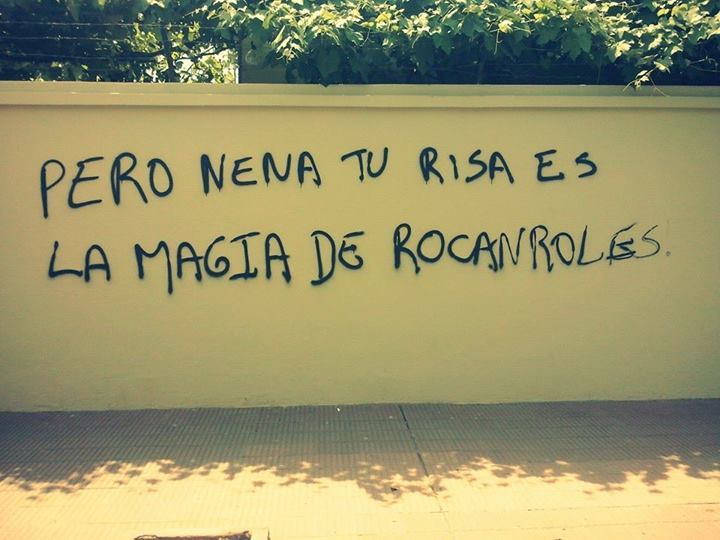 PERO NENA TU RISA ES
LA MAGIA DE ROCANROLES.